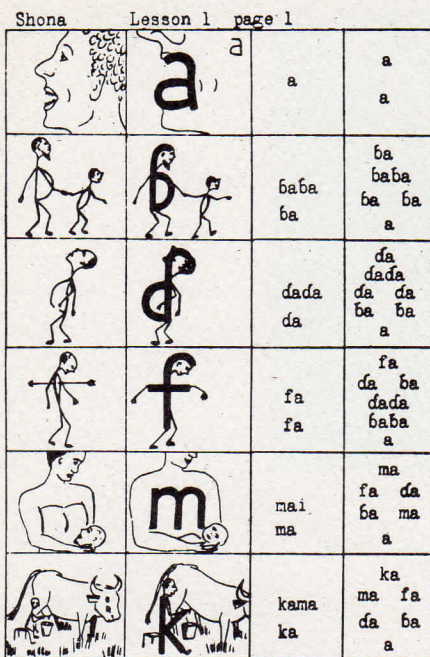 Shona Lesson 1 page 1
a
a
a
a
a
ɓ
ɓaɓa
ɓa
ɓa
ɓaɓa
ɓa ɓa
a
ɗ
ɗaɗa
ɗa
ɗa
ɗaɗa
ɗa ɗa
ɓa ɓa
a
f
fa
fa
fa
ɗa ɓa
ɗaɗa
ɓaɓa
a
m
mai
ma
ma
fa ɗa
ɓa ma
a
k
kama
ka
ka
ma fa
ɗa ɓa
a